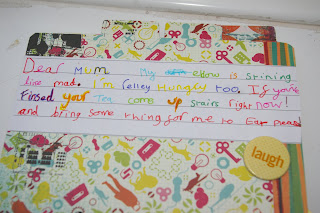 Dear Mum My elbow is stinging
like mad. I'm relley Hungry too, If you've
Finsed your Tea come up stairs right now!
and bring some thing for me to Eat please
laugh